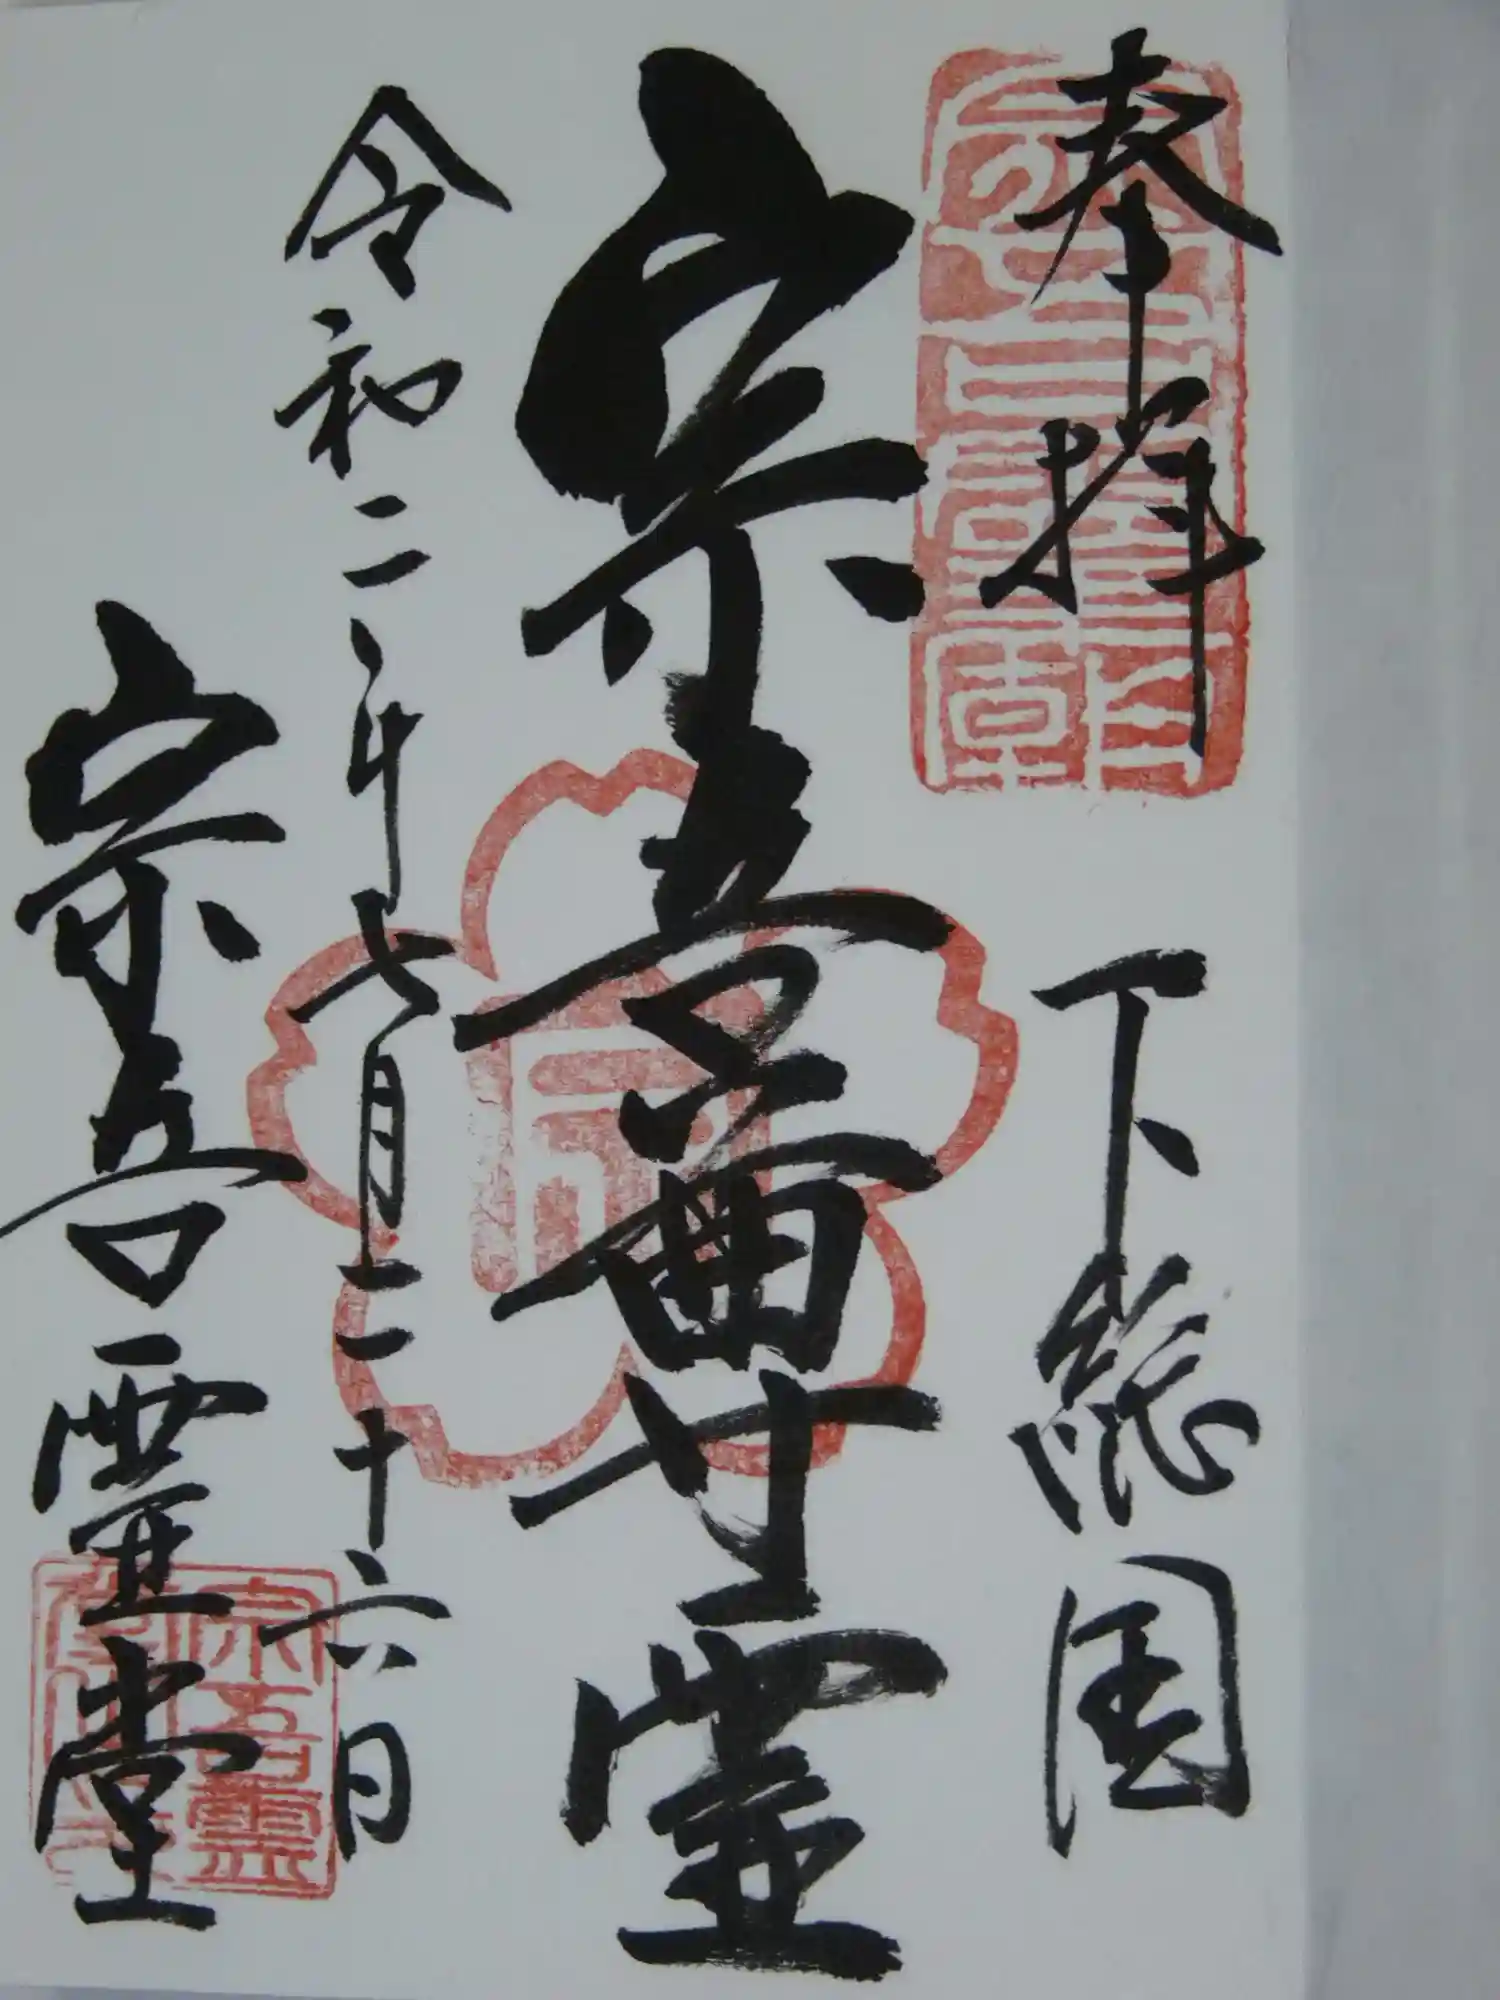 奉拝
下総国
宗吾尊霊
令和二年七月二十六日
宗吾霊堂
宗吾霊